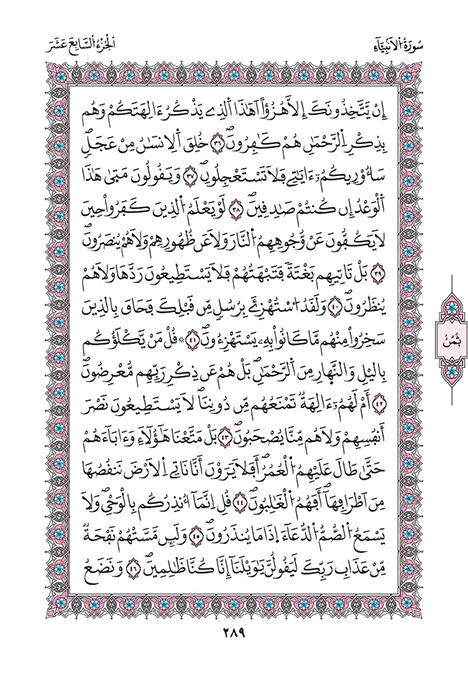 سُورَةُ الْأَنْبِيَاءِ
الْجُزْءُ السَّابِعَ عَشَرَ
إِنْ يَّتَّخِذُونَكَ إِلَّا هُزُؤًا اَهَٰذَا اَلَّذِے يَذْكُرُ ءَالِهَتَكُمْ وَهُم
بِذِكْرِ اِ۬لرَّحْمَٰنِ هُمْ كَٰفِرُونَ ۝٣٦ خُلِقَ اَ۬لِانسَٰنُ مِنْ عَجَلٖ
سَأُوْرِيكُمُۥٓ ءَايَٰتِے فَلَا تَسْتَعْجِلُونِ ۝٣٧ وَيَقُولُونَ مَتَىٰ هَٰذَا
اَ۬لْوَعْدُ إِن كُنتُمْ صَٰدِقِينَ ۝٣٨ لَوْ يَعْلَمُ اُ۬لذِينَ كَفَرُواْ حِينَ
لَا يَكُفُّونَ عَنْ وُّجُوهِهِمُ اُ۬لنَّارَ وَلَا عَن ظُهُورِهِمْ وَلَا هُمْ يُنصَرُونَ
۝٣٩ بَلْ تَاتِيهِم بَغْتَةٗ فَتَبْهَتُهُمْ فَلَا يَسْتَطِيعُونَ رَدَّهَا وَلَا هُمْ
يُنظَرُونَ ۝٤٠ وَلَقَدُ اُ۟سْتُهْزِئَ بِرُسُلٖ مِّن قَبْلِكَ فَحَاقَ بِالذِينَ
سَخِرُواْ مِنْهُم مَّا كَانُواْ بِهِۦ يَسْتَهْزِءُونَ ۝٤١ ۞ قُلْ مَنْ يَّكْلَؤُكُم
بِاليْلِ وَالنَّهَارِ مِنَ اَ۬لرَّحْمَٰنِ بَلْ هُمْ عَن ذِكْرِ رَبِّهِم مُّعْرِضُونَ
۝٤٢ أَمْ لَهُمُۥٓ ءَالِهَةٞ تَمْنَعُهُم مِّن دُونِنَا لَا يَسْتَطِيعُونَ نَصْرَ
أَنفُسِهِمْ وَلَا هُم مِّنَّا يُصْحَبُونَ ۝٤٣ بَلْ مَتَّعْنَا هَٰٓؤُلَآءِ وَءَابَآءَهُمْ
حَتَّىٰ طَالَ عَلَيْهِمُ اُ۬لْعُمُرُ أَفَلَا يَرَوْنَ أَنَّا نَاتِے اِ۬لَارْضَ نَنقُصُهَا
مِنَ اَطْرَافِهَآ أَفَهُمُ اُ۬لْغَٰلِبُونَ ۝٤٤ قُلِ اِنَّمَآ أُنذِرُكُم بِالْوَحْيِ وَلَا
يَسْمَعُ اُ۬لصُّمُّ اُ۬لدُّعَآءَ اِ۪ذَا مَا يُنذَرُونَ ۝٤٥ وَلَئِن مَّسَّتْهُمْ نَفْحَةٞ
مِّنْ عَذَابِ رَبِّكَ لَيَقُولُنَّ يَٰوَيْلَنَآ إِنَّا كُنَّا ظَٰلِمِينَ ۝٤٦ وَنَضَعُ
ثُمُنٌ
٢٨٩